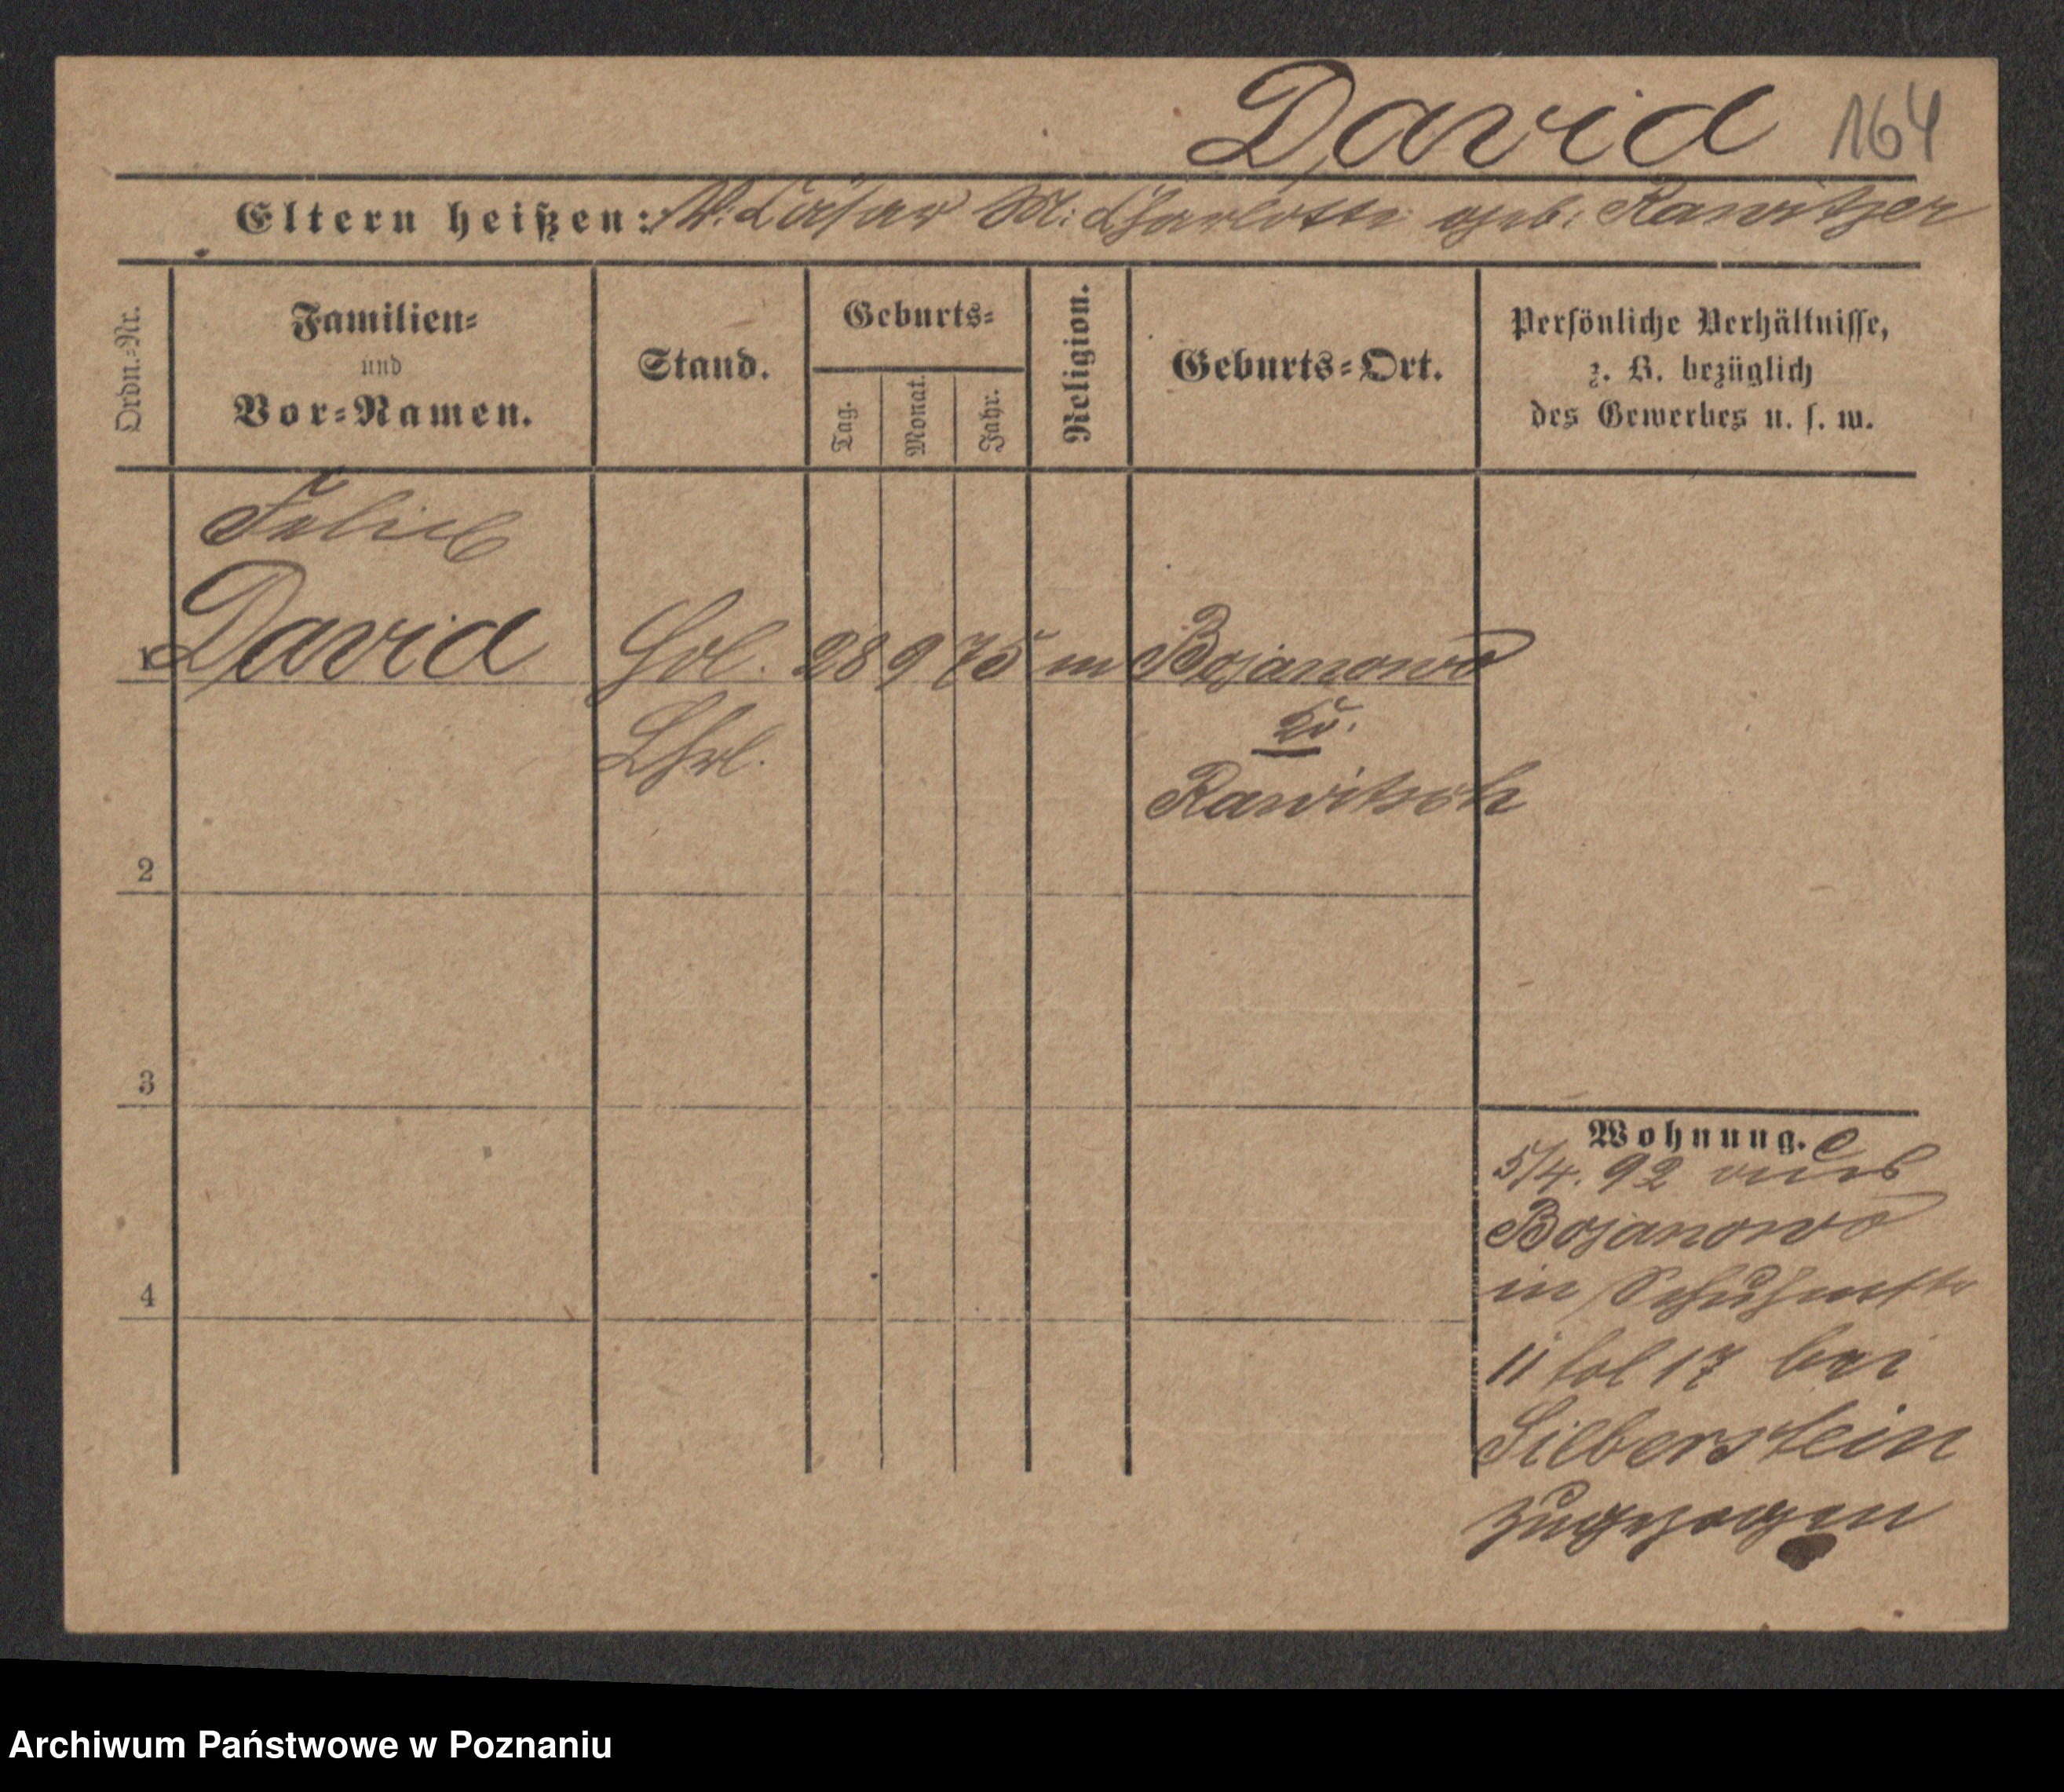 David 164
Eltern heißen: V. Cäsar M: Charlotte geb: Rawitzer
Ordn.-Nr.
Familien-
und
Vor-Namen.
Stand.
Geburts-
Tag.
Monat.
Jahr.
Religion.
Geburts-Ort.
Persönliche Verhältnisse,
z. B. bezüglich
des Gewerbes u. s. w.
Felix
1 David Hdl. 28 9 75 m Bojanowo
Lhrl. Kr.
Rawitsch
2
3
4
Wohnung.
5/4. 92 aus
Bojanowo
in
11 fol 17 bei
Silberstein
zugezogen
Archiwum Państwowe w Poznaniu